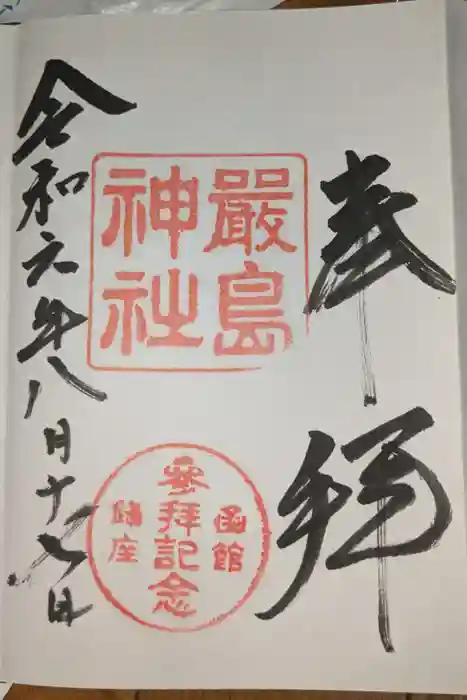 奉拝
嚴島
神社
函館
參拝記念
鎮座
令和元年八月十七日